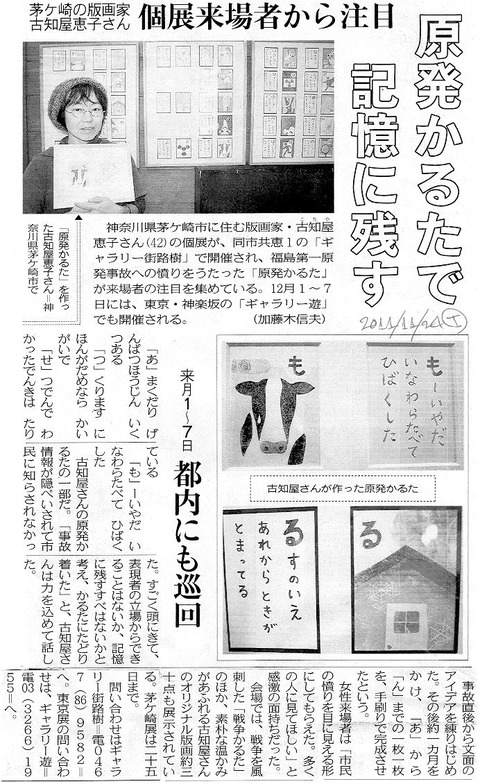 茅ケ崎の版画家
古知屋恵子さん
個展来場者から注目
原発かるたで
記憶に残す
2011/11/24(T)
「原発かるた」を作っ
た古知屋恵子さん＝神
奈川県茅ケ崎市で
神奈川県茅ケ崎市に住む版画家・古知屋
恵子さん(42)の個展が、同市共恵1の「ギ
ャラリー街路樹」で開催され、福島第一原
発事故への憤りをうたった「原発かるた」
が来場者の注目を集めている。12月1～7
日には、東京・神楽坂の「ギャラリー遊」
でも開催される。　（加藤木信夫）
「あ」まくだり　げ
んぱつほうじん　いく
つある
「つ」くります　に
ほんがだめなら　かい
がいで
「せ」つでんで　わ
かったでんきは　たり
ている
「も」ーいやだ　い
なわらたべて　ひばく
した
古知屋さんの原発か
るたの一部だ。「事故
情報が隠ぺいされて市
民に知らされなかっ
た。すごく頭にきて、
表現者の立場からでき
ることはないか、記憶
に残すすべはないかと
考え、かるたにたどり
着いた」と、古知屋さ
んは力を込めて話し
た。
来月1～7日
都内にも巡回
も
もーいやだ
いなわらたべて
ひばくした
古知屋さんが作った原発かるた
るすのいえ
あれからときが
とまってる
る
事故直後から文面の
アイデアを練りはじめ
た。その後約一カ月を
かけ、「あ」から
「ん」までの一枚一枚
を、手刷りで完成させ
たという。
女性来場者は「市民
の憤りを目に見える形
にしてもらえた。多く
の人に見てほしい」と
感激の面持ちだった。
会場では、戦争を風
刺した「戦争かるた」
のほか、素朴な温かみ
があふれる古知屋さん
のオリジナル版画約三
十点も展示されてい
る。茅ケ崎展は二十五
日まで。
問い合わせはギャラ
リー街路樹＝電046
7(86)9582＝
へ。東京展の問い合わ
せは、ギャラリー遊＝
電03(3266)19
55＝へ。